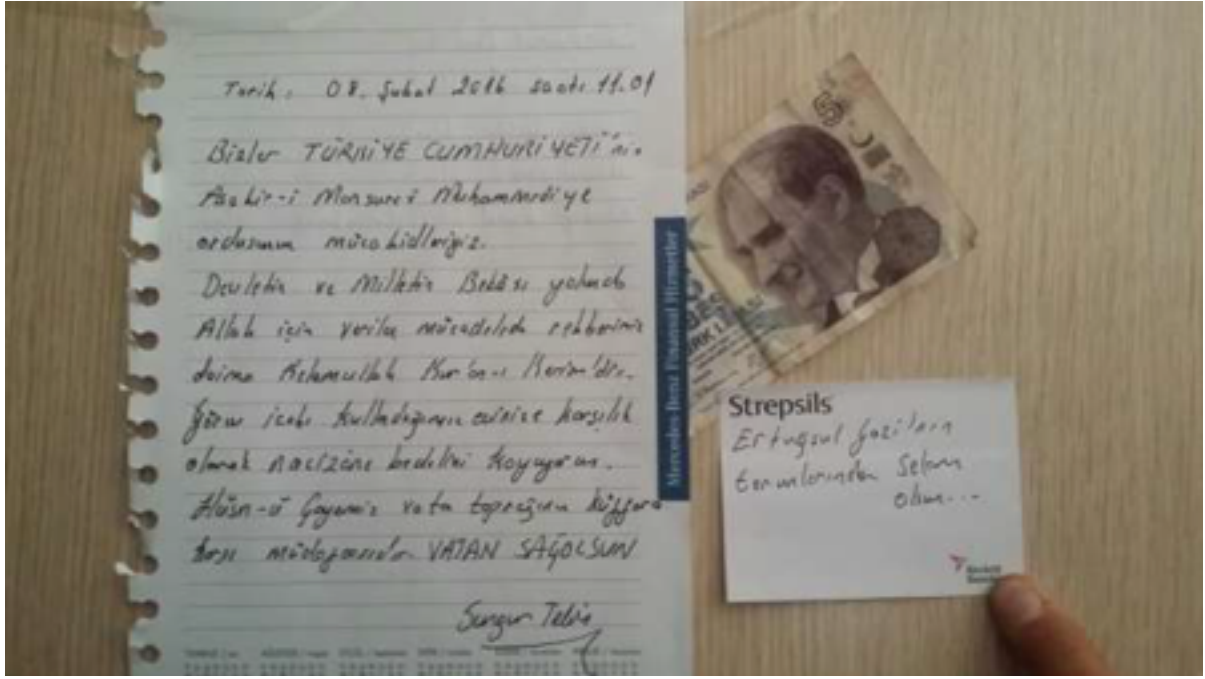 Tarih: 08. Şubat 2016 saati 11.01
Bizler TÜRKİYE CUMHURİYETİ'nin
Asakir-i Mansure-i Muhammediye
ordusunun mücahidleriyiz.
Devletin ve Milletin Bekası yolunda
Allah için verilen mücadelede rehberimiz
daima Kelamullah Kur'an-ı Kerim'dir.
Görev icabı kullandığımız evinize karşılık
olarak nacizane bedelini koyuyorum.
Hüsn-ü Gayemiz vatan toprağının küffara
karşı müdafaasıdır VATAN SAĞOLSUN
Sungur Tekin
Mercedes-Benz Finansal Hizmetler
5
BEŞ
TÜRK L
Strepsils
Ertuğrul Gazi'nin
torunlarından Selam
olsun...